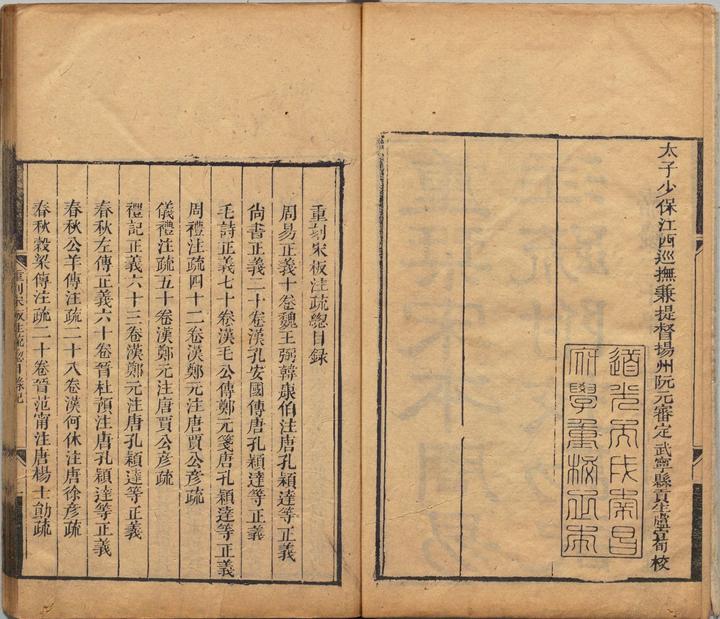 太子少保江西巡撫兼提督揚州阮元審定武寧縣貢生盧宣旬校
道光丙戌南昌
府學重校正本
重刻宋板注疏總目錄
周易正義十卷魏王弼韓康伯注唐孔穎達等正義
尙書正義二十卷漢孔安國傳唐孔穎達等正義
毛詩正義七十卷漢毛公傳鄭元箋唐孔穎達等正義
周禮注疏四十二卷漢鄭元注唐賈公彥疏
儀禮注疏五十卷漢鄭元注唐賈公彥疏
禮記正義六十三卷漢鄭元注唐孔穎達等正義
春秋左傳正義六十卷晉杜預注唐孔穎達等正義
春秋公羊傳注疏二十八卷漢何休注唐徐彥疏
春秋穀梁傳注疏二十卷晉范甯注唐楊士勛疏
重刻宋板注疏總目錄記